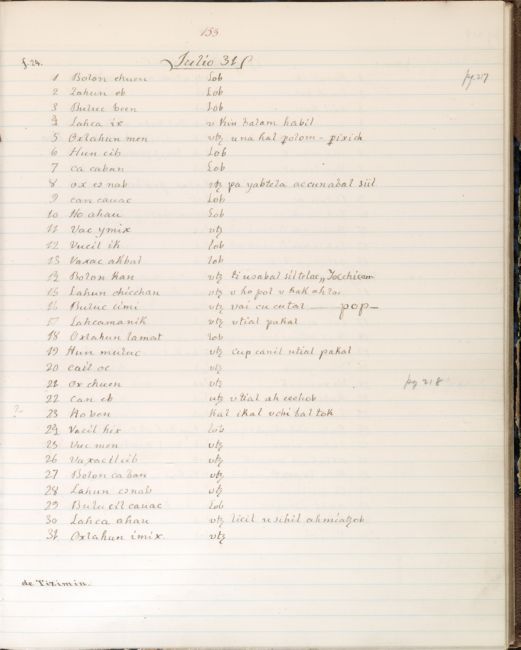 153
f. 24. Julio 31
1 Bolon chuen lob pg 217
2 Lahun eb lob
3 Buluc been lob
4 Lahca ix u kin balam habil
5 Oxlahun men utz u na kal polom - pixich
6 Hun cib lob
7 ca caban lob
8 ox esnab utz pa yabtela accunabal sül
9 can cauac lob
10 Ho ahau lob
11 Vac ymix utz
12 Vucil ik lob
13 Vaxac akbal lob
14 Bolon kan utz li usabal sil telac
15 Lahun chicchan utz u ho pol u kak
16 Buluc cimi utz vai cu cutal pop
17 Lahcamanik utz utial pakal
18 Oxlahun lamat lob
19 Hun muluc utz cup canil utial pakal
20 cail oc utz
21 Ox chuen utz pg 218
22 can eb utz utial ah
23 Ho ben kal ikal uchi bal tok
24 Vacil hix lob
25 Vuc men utz
26 Vaxacil cib utz
27 Bolon caban utz
28 Lahun esnab utz
29 Bulucil cauac lob
30 Lahca ahau utz licil u sihil ahmiatzob
31 Oxlahun imix utz
de Tizimin.